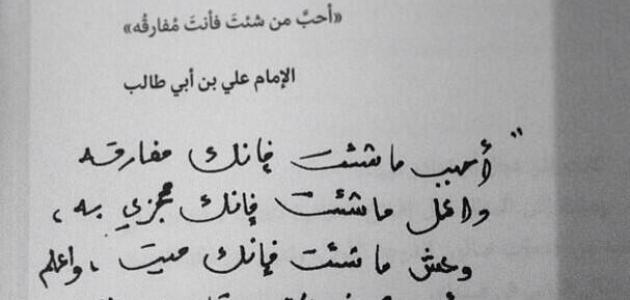 «أحبَّ من شئتَ فأنتَ مُفارقُه»
الإمام علي بن أبي طالب
" أحبب ما شئت فإنك مفارقه
واعمل ما شئت فإنك مجزي به ،
وعش ما شئت فإنك ميت ، واعلم